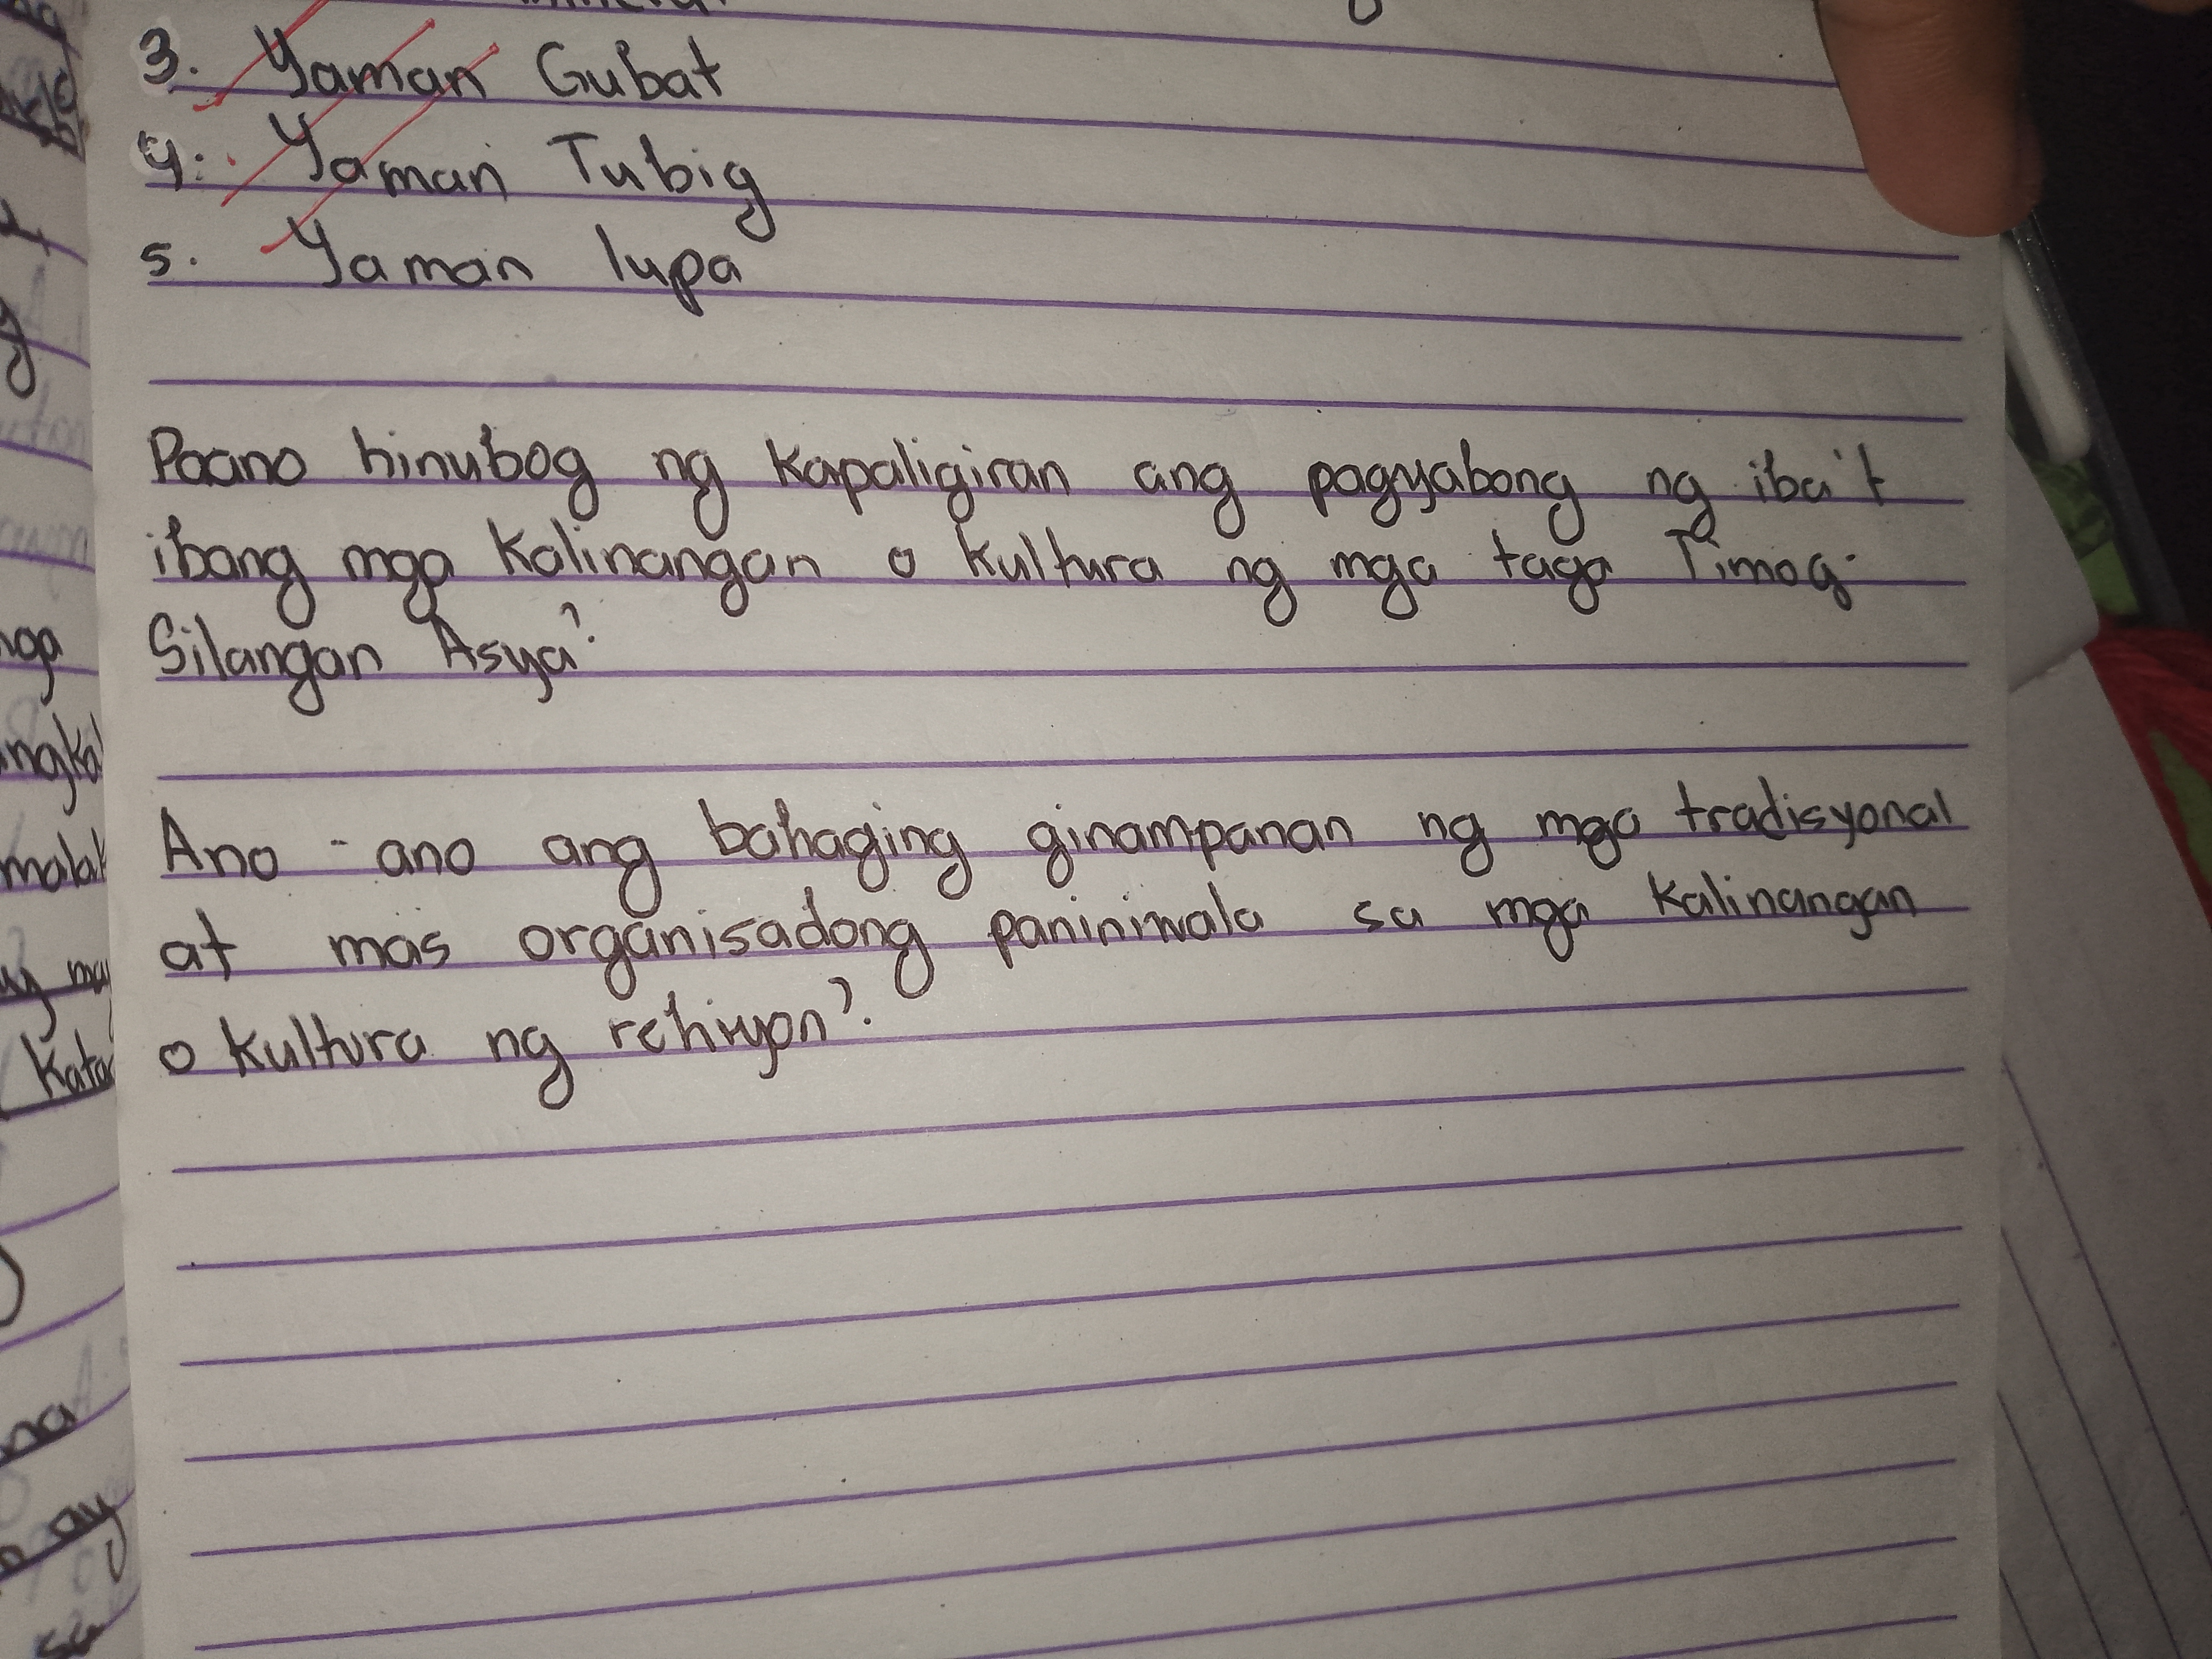 3. Yaman Gubat
4. Yaman Tubig
5. Yaman lupa
Paano hinubog ng kapaligiran ang pagyabong ng iba't
ibang mga kalinangan o kultura ng mga taga Timog-
Silangan Asya?
Ano-ano ang bahaging ginampanan ng mga tradisyonal
at mas organisadong paniniwala sa mga kalinangan
o kultura ng rehiyon?
nga
may
Kata
na
ay
sa